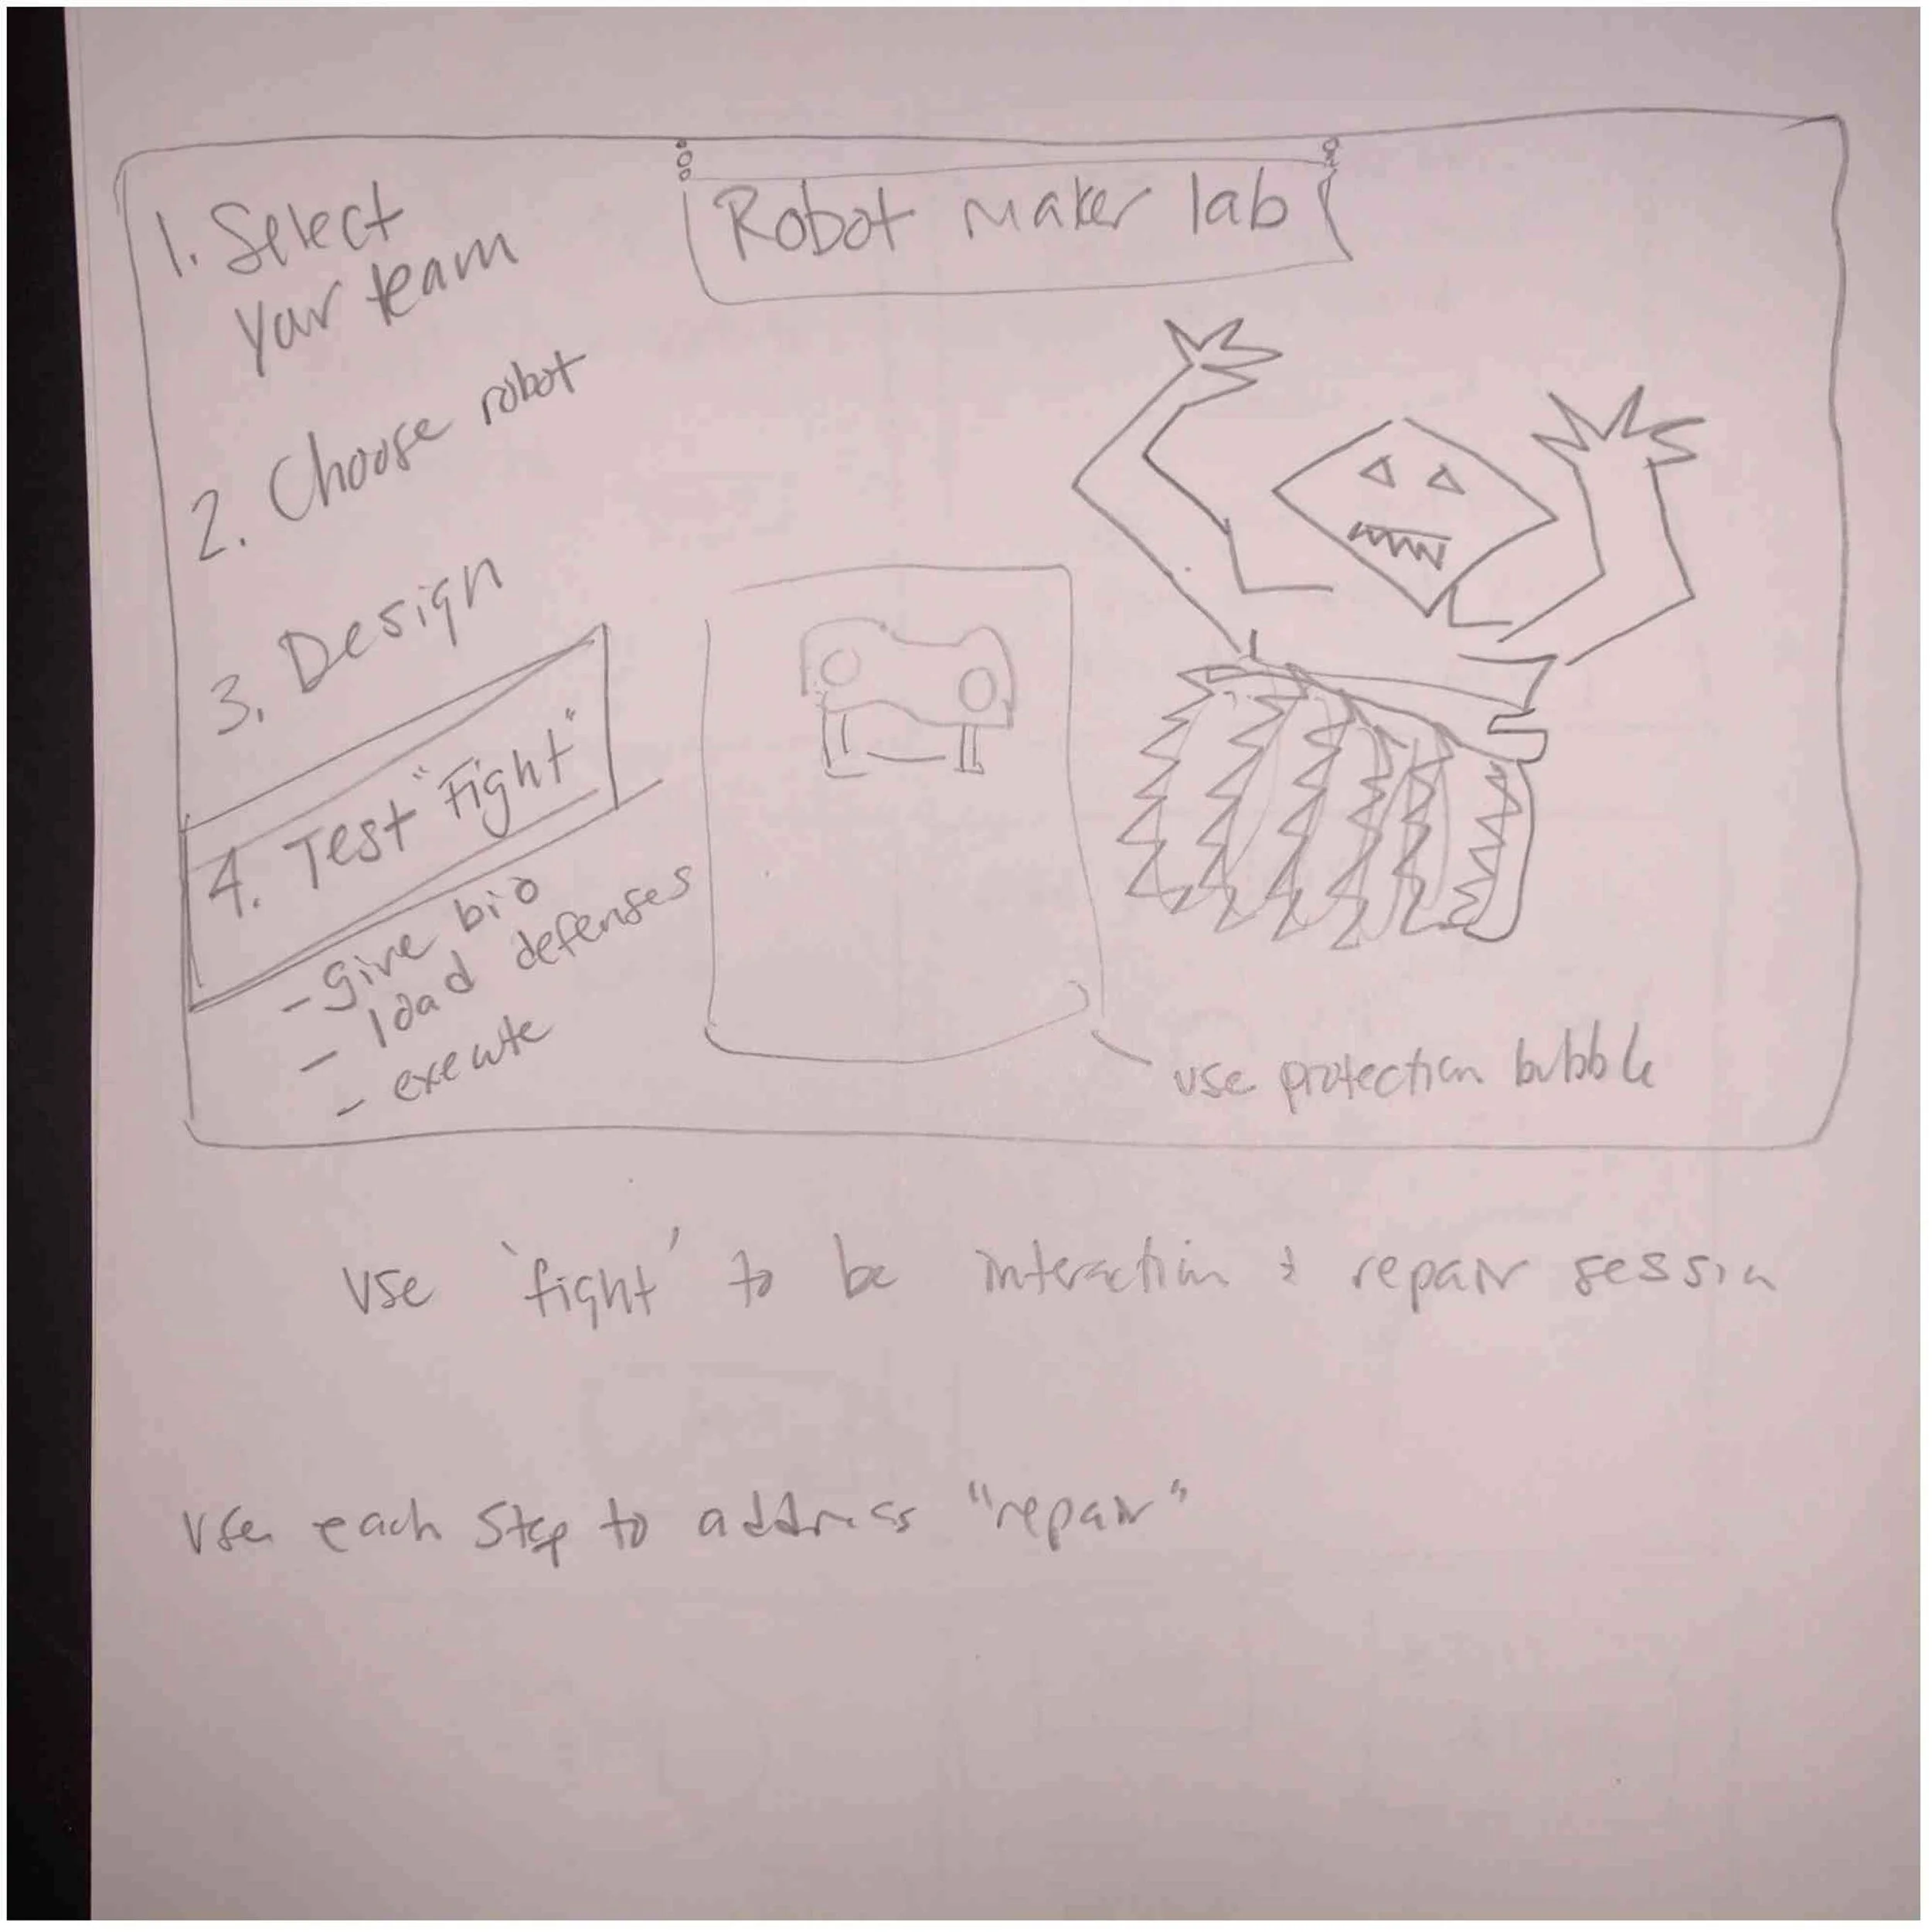 Robot maker lab
1. Select
your team
2. Choose robot
3. Design
4. Test "Fight"
- give bio
- load defenses
- execute
use protection bubble
use 'fight' to be interaction & repair session
use each step to address "repair"